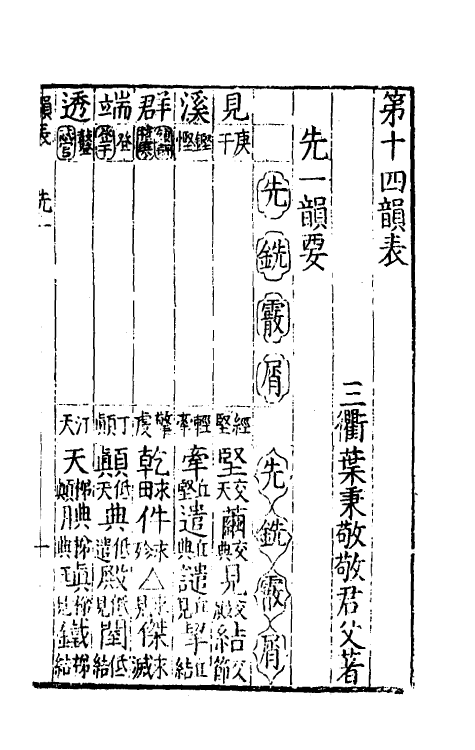 第十四韻表
三衢葉秉敬敬君父著
先一韻要
先 銑 霰 屑
先 銑 霰 屑
見 庚干
經堅
堅交天 繭交典 見交殿 結交節
溪 鏗慳
輕牽
牽丘堅 遣丘典 譴丘見 挈丘結
群
擎虔
乾求田 件求殄 △求見 傑求滅
端 登
丁顛
顛低天 典低遣 殿低見 闆低結
透
汀天
天梯顛 腆梯典 瑱梯 鐵梯結
韻表 先一
十